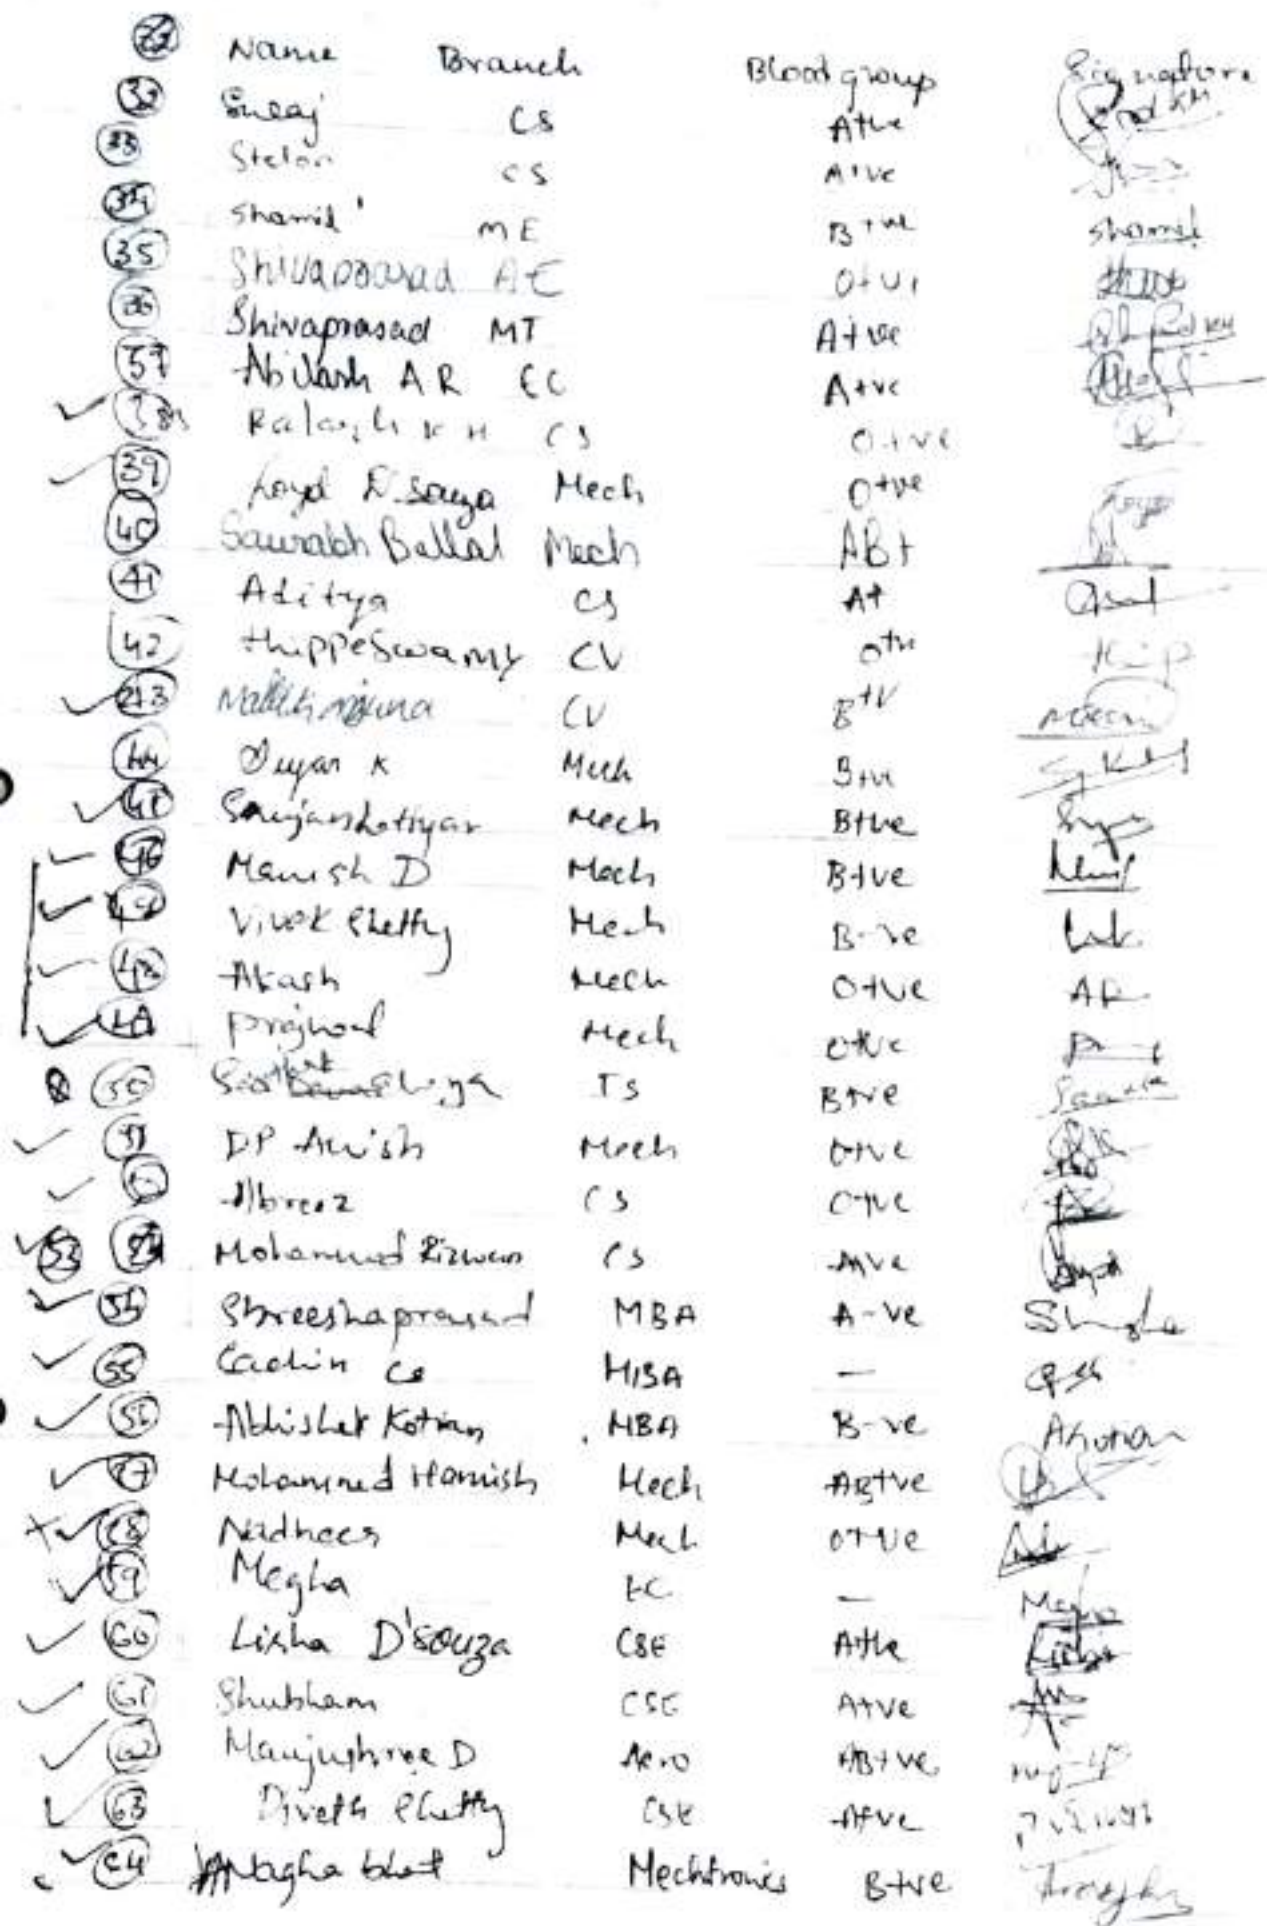 Name Branch Blood group Signature
32 Suraj CS A+ve
33 Stelan CS A+ve
34 Shamil ME B+ve Shamil
35 Shivaprasad AE O+ve
36 Shivaprasad MT A+ve
37 Abilash A R EC A+ve
38 K H CS O+ve
39 Loyd D'souza Mech O+ve
40 Saurabh Ballal Mech AB+
41 Aditya CS A+
42 thippeswamy CV O+ve
43 Mallikarjuna CV B+v
44 Sujan K Mech B+ve
45 Mech B+ve
46 Manish D Mech B+ve
47 Vivek Shetty Mech B-ve
48 Akash Mech O+ve
49 Prajwal Mech O+ve
50 IS B+ve
51 DP Anish Mech O+ve
Abreez CS O+ve
53 Mohammed Rizwan CS A+ve
54 Shreeshaprasad MBA A-ve
55 Sachin MBA —
56 Abhishek Kotian MBA B-ve AKotian
57 Mohammed Hamish Mech AB+ve
58 Nadheer Mech O+ve
59 Megha EC —
60 Lisha D'souza CSE A+ve Lisha
61 Shubham CSE A+ve
62 Manjushree D Aero AB+ve
63 Diveth Shetty CSE A+ve
64 Anagha bhat Mechtronics B+ve